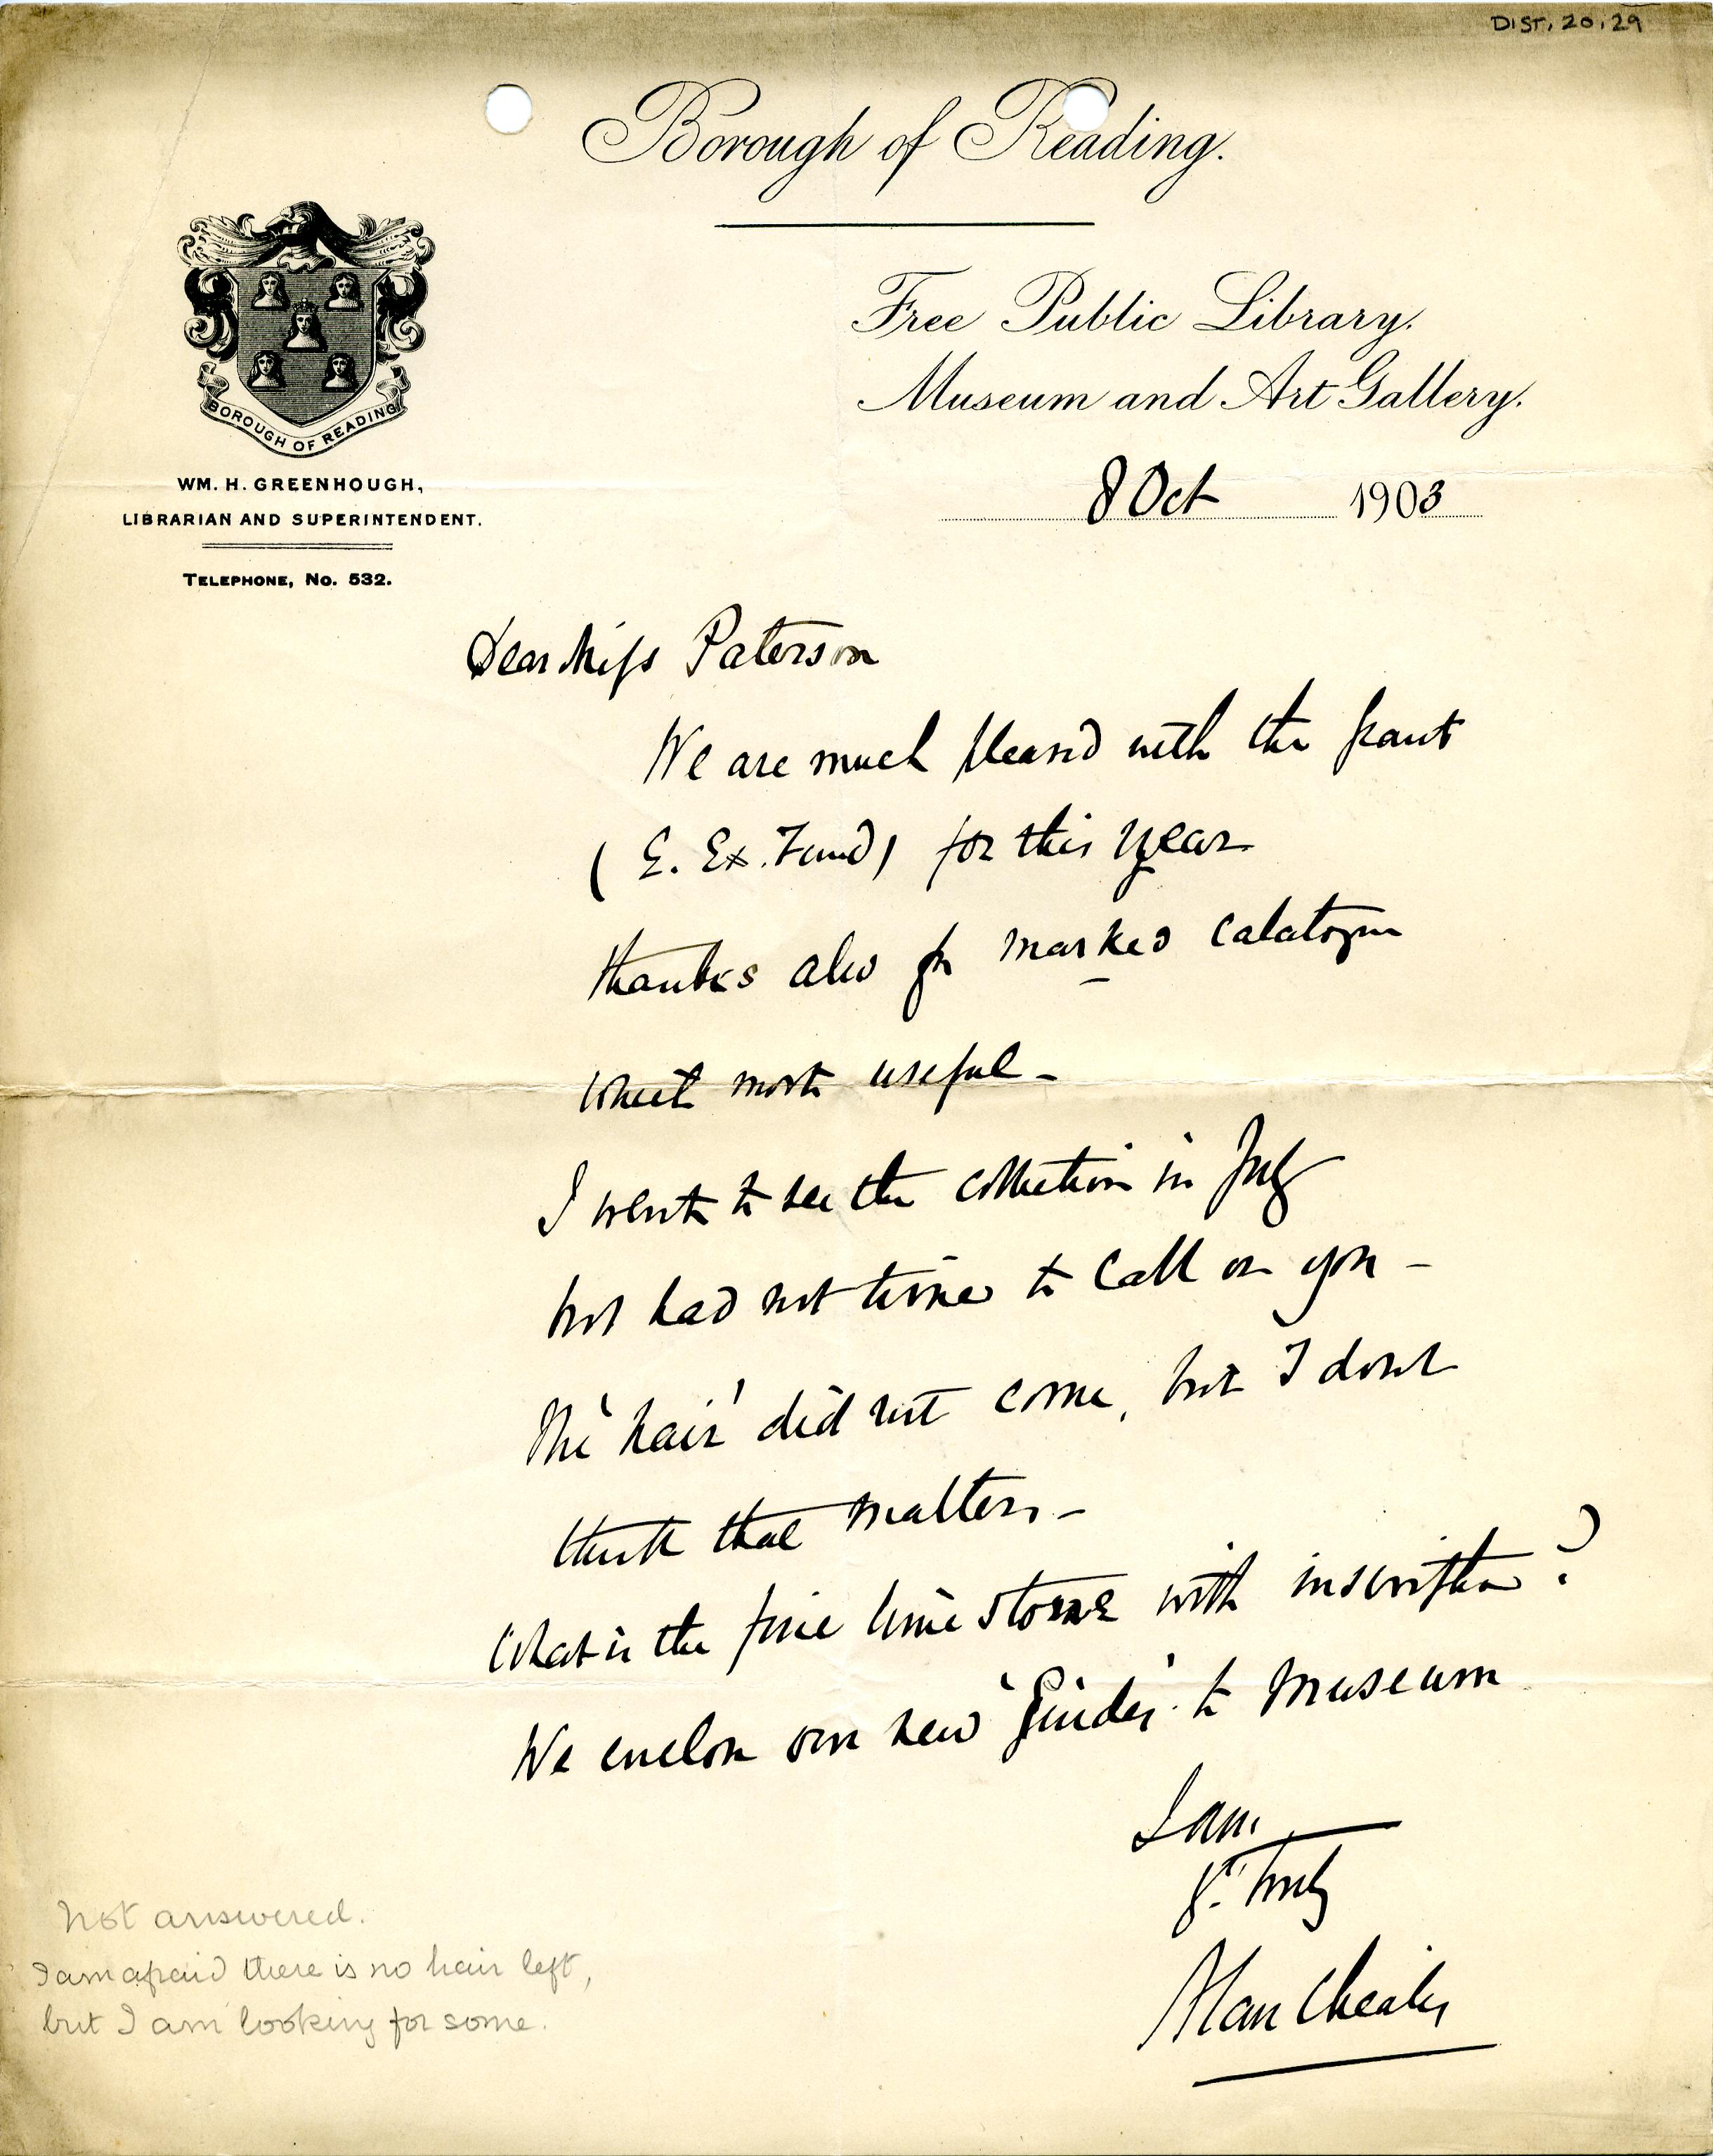 DIST. 20.29
Borough of Reading.
Free Public Library.
Museum and Art Gallery.
BOROUGH OF READING
WM. H. GREENHOUGH,
LIBRARIAN AND SUPERINTENDENT.
TELEPHONE, No. 532.
8 Oct 1903
Dear Miss Paterson
We are much pleased with the grant
(E. Ex. Fund) for this year
thanks also for marked calatogue
most useful -
I went to see the collection in July
but had not time to call on you -
The 'hair' did not come, but I dont
think that matters -
What is the fine limestone with inscription?
We enclose our new 'Guide' to Museum
I am
yrs. Truly
Alan Cheales
Not answered.
I am afraid there is no hair left,
but I am looking for some.